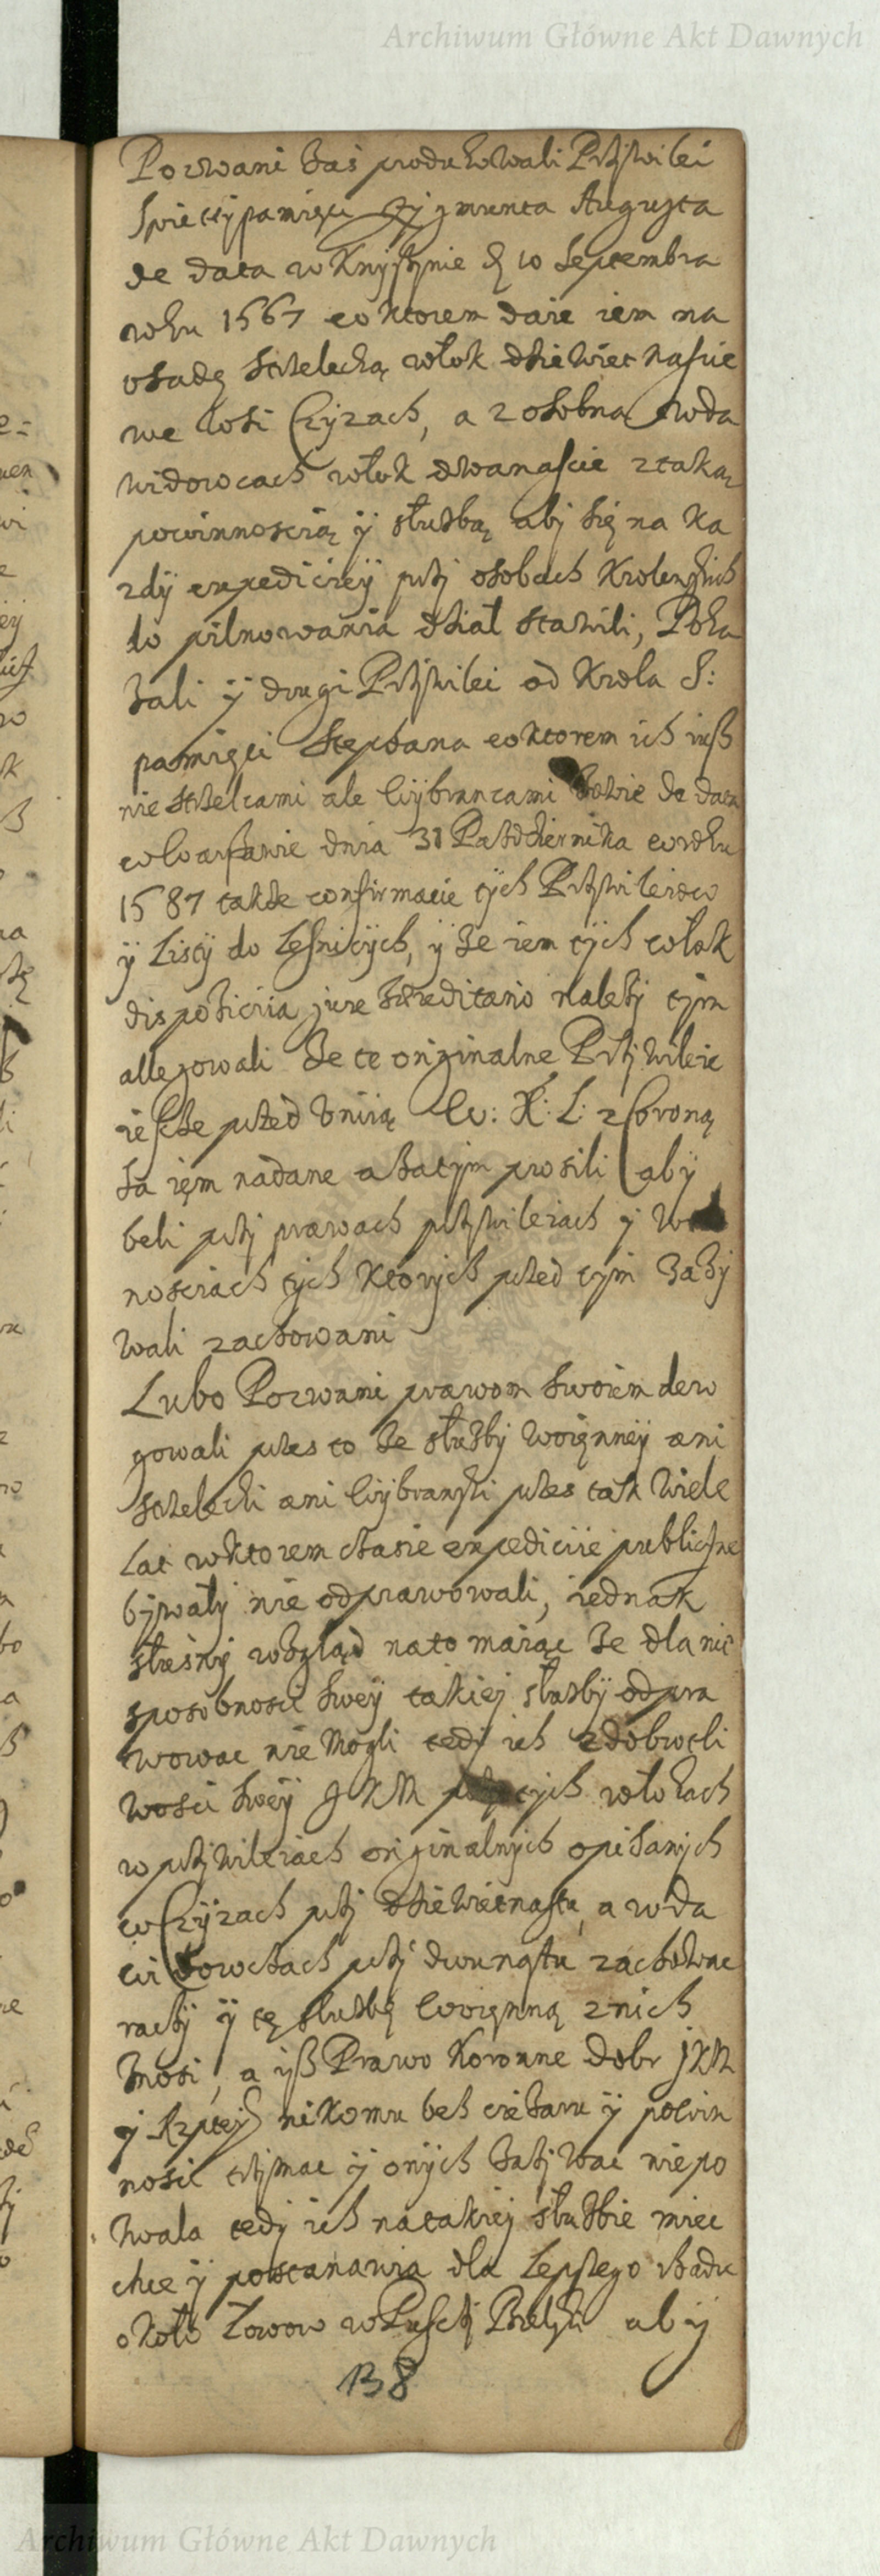 Archiwum Główne Akt Dawnych
Pozwani zas produkowali Przÿwilei
Swietÿ pamięci Zÿgmunta Augusta
de data w Knyszynie d 10 Septembra
roku 1567 w ktorem daie iem na
osadę strzelecką włok dziewietnascie
we wsi Czÿzach, a z osobna w Da
widowcach włok dwanascie z taką
powinnoscią ÿ służbą abÿ się na ka
zdÿ expediciÿ przÿ osobach Krolewskich
do pilnowania dział stawili, Poka
zali ÿ drugi Przÿwilei od Krola S:
pamięci Stephana w ktorem ich iusz
nie strzelcami ale Wÿbrancami zowie de data
w Warszawie dnia 31 Pazdziernika w roku
1587 takze confirmacie tÿch Przÿwileiow
ÿ Listÿ do Lesniczÿch, ÿ ze iem tÿch włok
dispoziciia jure hæreditario należÿ tÿm
allegowali ze te originalne Przÿwileie
iescze przed Vniią W: X: L: z Coroną
są ięm nadane a zatÿm prosili abÿ
beli przÿ prawach przÿwileiach ÿ
nosciach tÿch ktorÿch przed tÿm zazÿ
wali zachowani
Lubo Pozwani prawom swoiem dero
gowali przes to ze służbÿ woięnnëÿ ani
strzelecki ani Wÿbranski przes tak wiele
lat w ktorem czasie expediciie publiczne
bÿwałÿ nie odprawowali, iednak
słusnÿ wzgląd na to maiąc ze dla nie
sposobnosci swëÿ takiej służbÿ odpra
wowac nie mogli tedÿ ich z dobrotli
wosci swëÿ J K M tÿch włokach
w przÿwileiach originalnÿch opisanÿch
w Czÿzach przÿ dziewietnastu, a w Da
widowczach przÿ dwunastu zachowac
raczÿ ÿ tę służbę woięnną z nich
znosi, a isz Prawo Koronne dobr JKM
ÿ Rzptëÿ nikomu bez cięzaru ÿ powin
nosci trzÿmac ÿ onÿch zazÿwac nie po
zwala tedÿ ich na takiej służbie miec
chce ÿ postanawia dla lepszego rządu
około łowow w Pusczÿ Bielski abÿ
138
Archiwum Główne Akt Dawnych